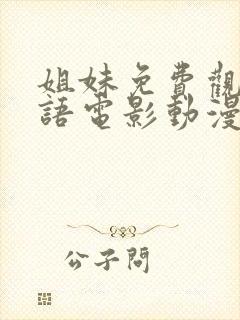 姐妹免費觀
語電影動漫
公子問